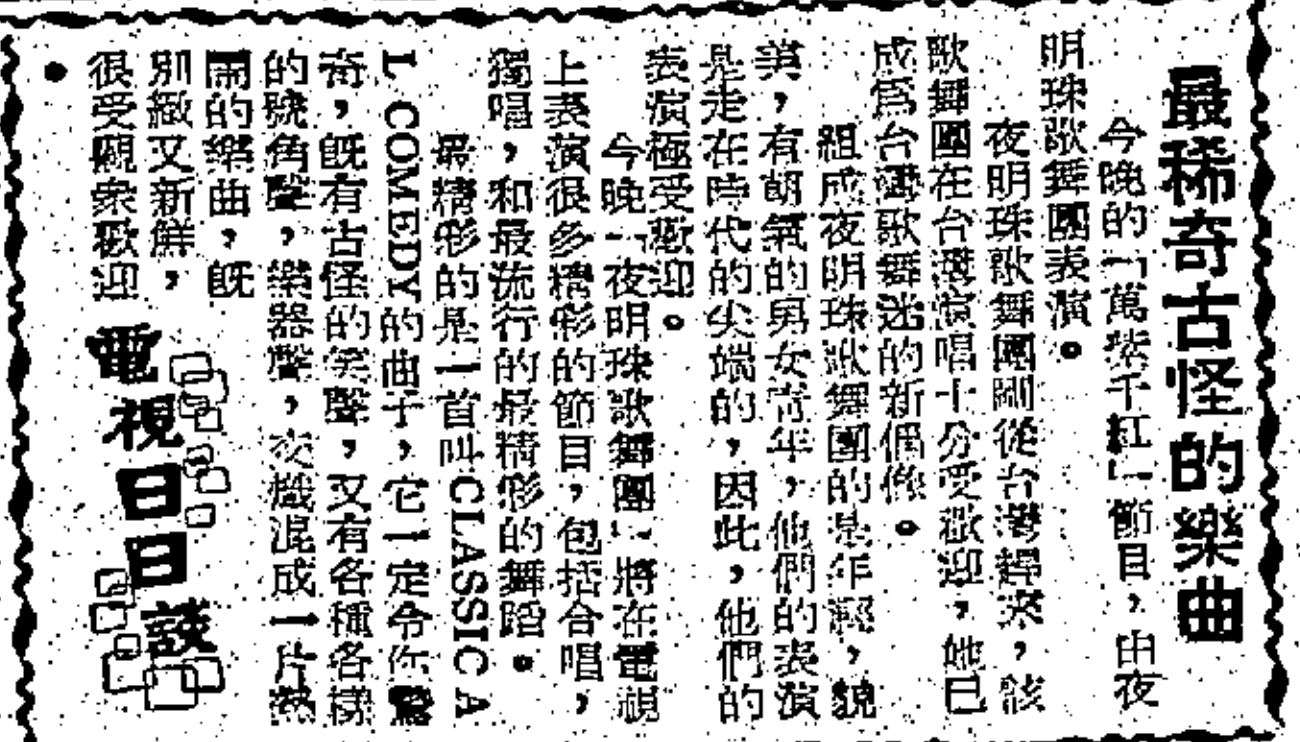 最稀奇古怪的樂曲
今晚的「萬紫千紅」節目，由夜
明珠歌舞團表演。
夜明珠歌舞團剛從台灣歸來，該
歌舞團在台灣演唱十分受歡迎，她已
成爲台灣歌舞迷的新偶像。
組成夜明珠歌舞團的是年輕，貌
美，有朝氣的男女青年，他們的表演
是走在時代的尖端的，因此，他們的
表演極受歡迎。
今晚「夜明珠歌舞團」將在電視
上表演很多精彩的節目，包括合唱，
獨唱，和最流行的最精彩的舞蹈。
最精彩的是一首叫CLASSIC A
L COMEDY的曲子，它一定令你驚
奇，旣有古怪的笑聲，又有各種各樣
的號角聲，樂器聲，交織混成一片熱
鬧的樂曲，旣
別緻又新鮮，
很受觀衆歡迎
。
電視日日談